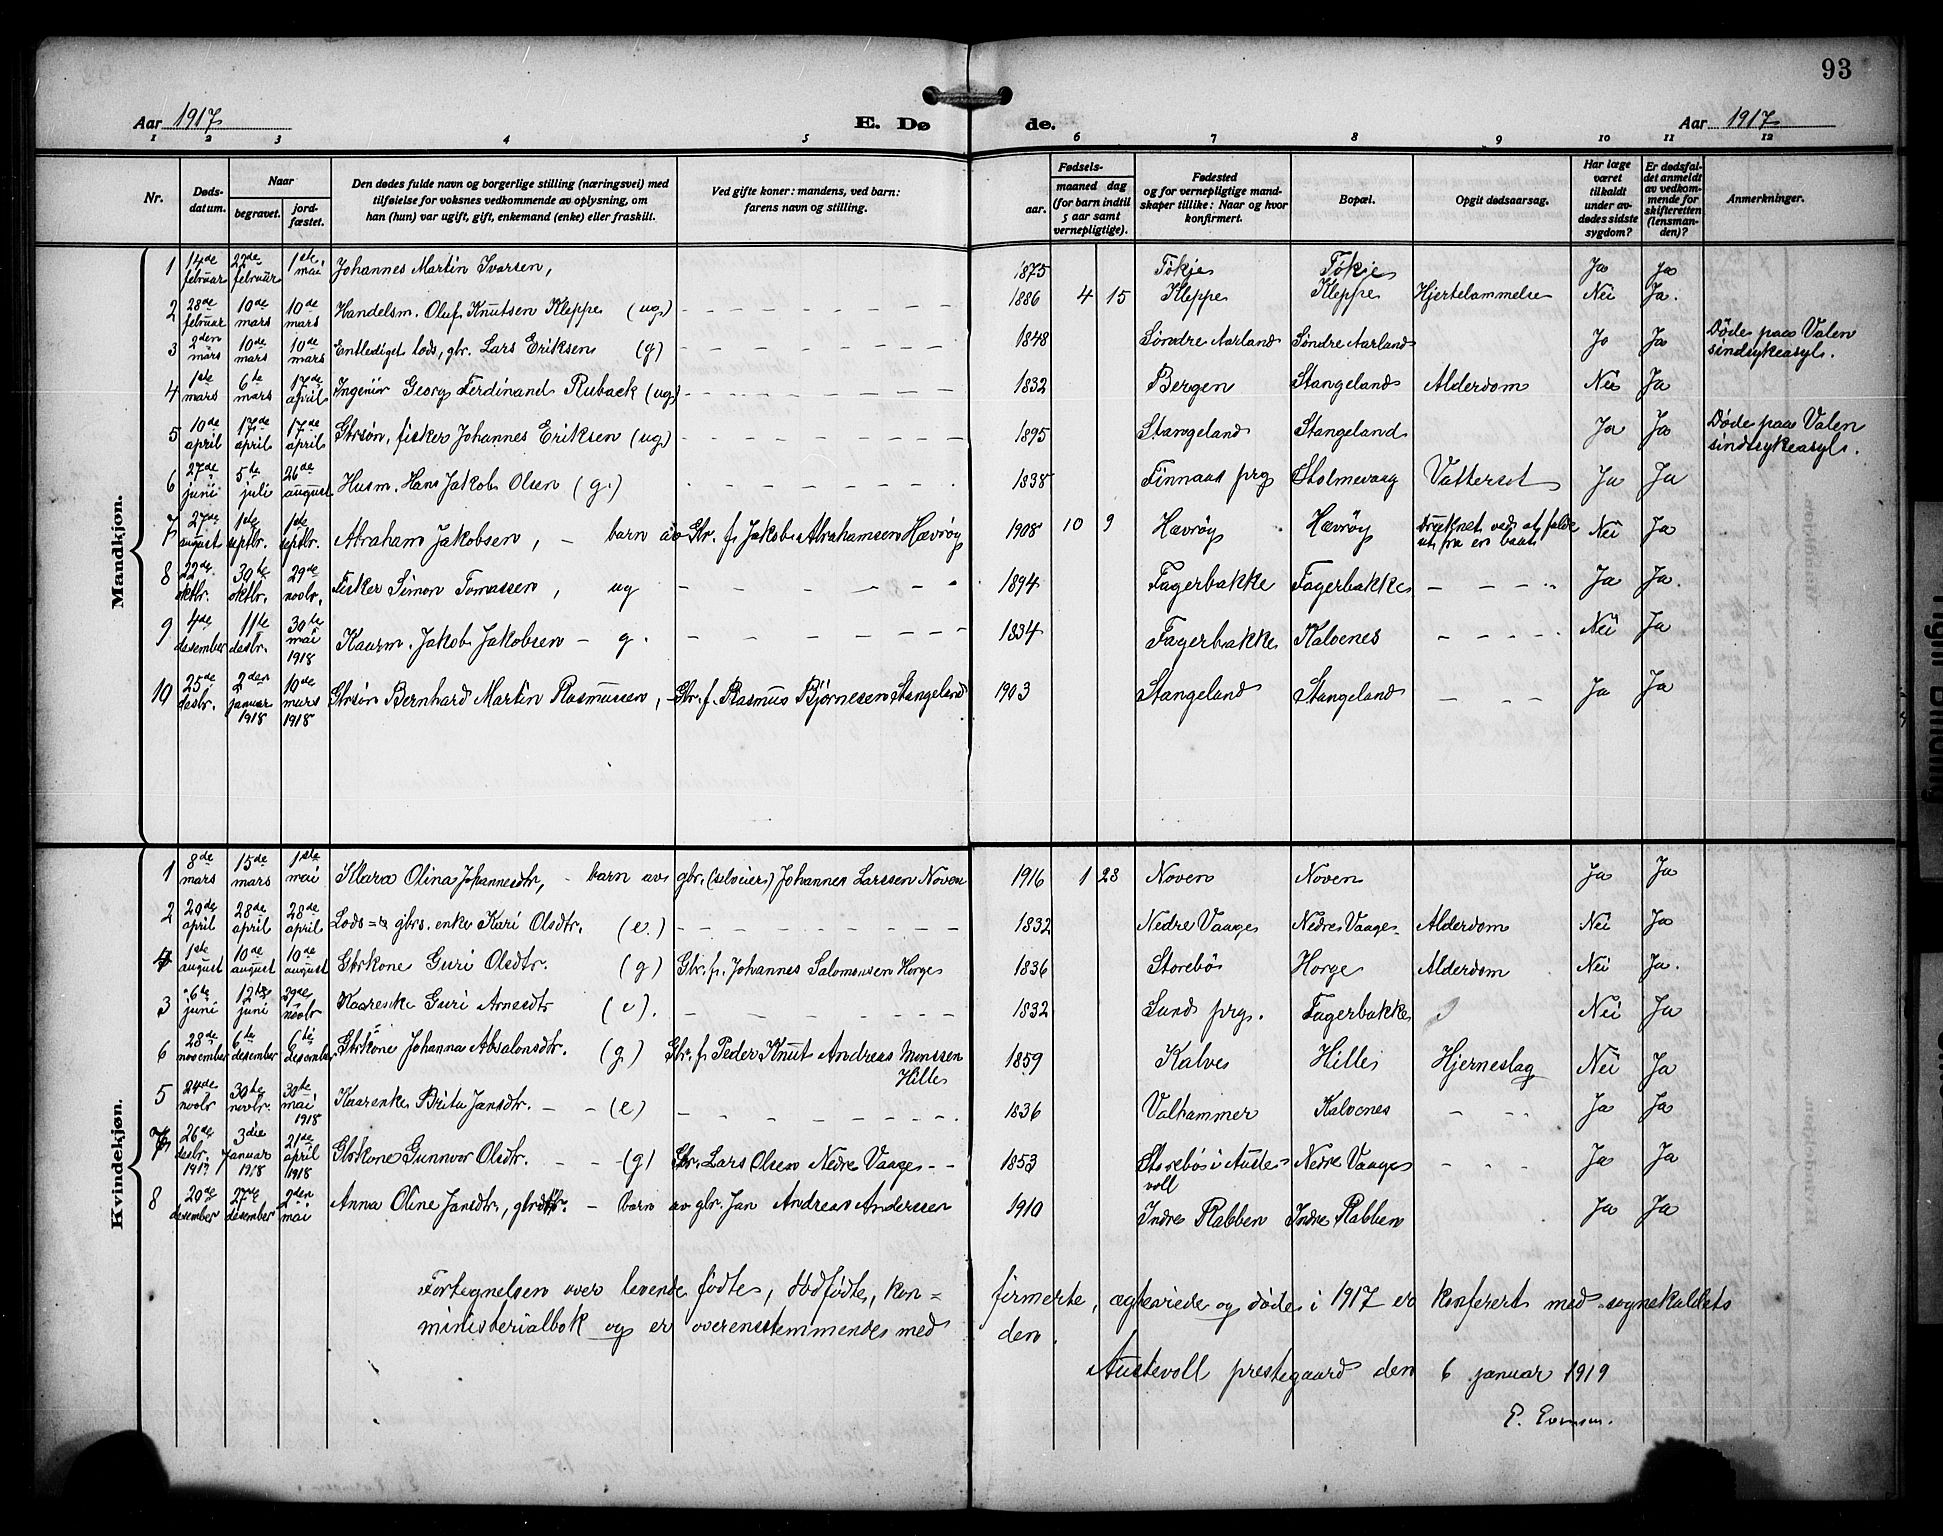 93
Aar 1917 E. Dø de. Aar 1917
1 2 3 4 5 6 7 8 9 10 11 12
Nr. | Døds-datum. | Naar begravet. | jord-fæstet. | Den dødes fulde navn og borgerlige stilling (næringsvei) med tilføielse for voksnes vedkommende av oplysning, om han (hun) var ugift, gift, enkemand (enke) eller fraskilt. | Ved gifte koner: mandens, ved barn: farens navn og stilling. | Fødsels- aar. | maaned dag (for barn indtil 5 aar samt vernepligtige). | Fødested og for vernepligtige mand-skaper tillike: Naar og hvor konfirmert. | Bopæl. | Opgit dødsaarsag. | Har læge været tilkaldt under av-dødes sidste sygdom? | Er dødsfal-det anmeldt av vedkom-mende for skifteretten (lensman-den)? | Anmerkninger.
Mandkjøn.
1 14de februar 22de februar 1ste mai Johannes Martin Ivarsen, 1875 Tøkje Tøkje Ja Ja
2 28de februar 10de mars 10de mars Handelsm. Oluf Knutsen Kleppe (ug) 1886 4 15 Kleppe Kleppe Hjertelammelse Nei Ja.
3 2den mars 10de mars 10de mars Entlediget lods, gbr. Lars Eriksen (g) 1848 Søndre Aarland Søndre Aarland Ja Ja Døde paa Valen sindsykeasyl.
4 1ste mars 6te mars 17de april Ingeniør Georg Ferdinand Ruback (ug) 1832 Bergen Stangeland Alderdom Nei Ja
5 10de april 17de april 17de april Gbrsøn, fisker Johannes Eriksen (ug) 1895 Stangeland Stangeland Ja Ja Døde paa Valen sindsykeasyl.
6 27de juni 5te juli 26de august Husm. Hans Jakob Olsen (g.) 1838 Finnaas prg Stolmevaag Vattersot Ja Ja
7 27de august 1ste septbr. 1ste septbr. Abraham Jakobsen, – barn av Gbr. f. Jakob Abrahamsen Hævrøy 1908 10 9 Hævrøy Hævrøy Druknet ved at falde ut fra en baat Nei Ja
8 22de oktbr. 30te oktbr. 29de novbr. Fisker Simon Tomassen, ug 1894 Fagerbakke Fagerbakke Ja Ja.
9 4de desember 11te desbr. 30te mai 1918 Kaarm. Jakob Jakobsen – g. 1834 Fagerbakke Kalvenes Nei Ja
10 25de desbr. 2den januar 1918 10de mars 1918 Gbrsøn Bernhard Martin Rasmussen, – Gbr. f. Rasmus Bjørnesen Stangeland 1903 Stangeland Stangeland Ja Ja
Kvindekjøn.
1 8de mars 15de mars 1ste mai Klara Olina Johannesdtr, – barn av gbr. (selveier) Johannes Larssen Noven 1916 1 28 Noven Noven Ja Ja
2 20de april 28de april 28de april Lods = gbrs. enke Kari Olsdtr. (e.) 1832 Nedre Vaage Nedre Vaage Alderdom Nei Ja
4 1ste august 10de august 10de august Gbrkone Guri Olsdtr. (g) Gbr. f. Johannes Salomonsen Horge 1836 Storebø Horge Alderdom Nei Ja.
3 6te juni 12te juni 29de novbr Kaarenke Guri Arnesdtr (e). 1832 Sund prg. Fagerbakke Nei Ja
6 28de november 6te desember 6te desember Gbrkone Johanna Absalonsdtr. (g) Gbr. f. Peder Knut Andreas Monssen Hille 1859 Kalve Hille Hjerneslag Nei Ja
5 24de novbr 30te novbr. 30te mai 1918 Kaarenke Brita Jansdtr. – – (e) 1836 Valhammer Kalvenes Ja Ja
7 26de desbr. 1917 3die Januar 1918 21de april 1918 Gbrkone Gunnvor Olsdtr. – – (g) Gbr. Lars Olsen Nedre Vaage – – 1853 Storebø i Austevoll Nedre Vaage Ja Ja
8 20de desember 27de desember 2den mai Anna Oline Jansdtr, gbrdtr. – barn av gbr. Jan Andreas Anderssen 1910 Indre Rabben Indre Rabben Ja Ja
Fortegnelsen over levende fødte, dødfødte, kon= firmerte,ægteviede og døde i 1917 er konferert med sognekaldets
ministerialbok og er overensstemmende med den.
Austevoll prestegaard den 6 januar 1919
E. Evensen.